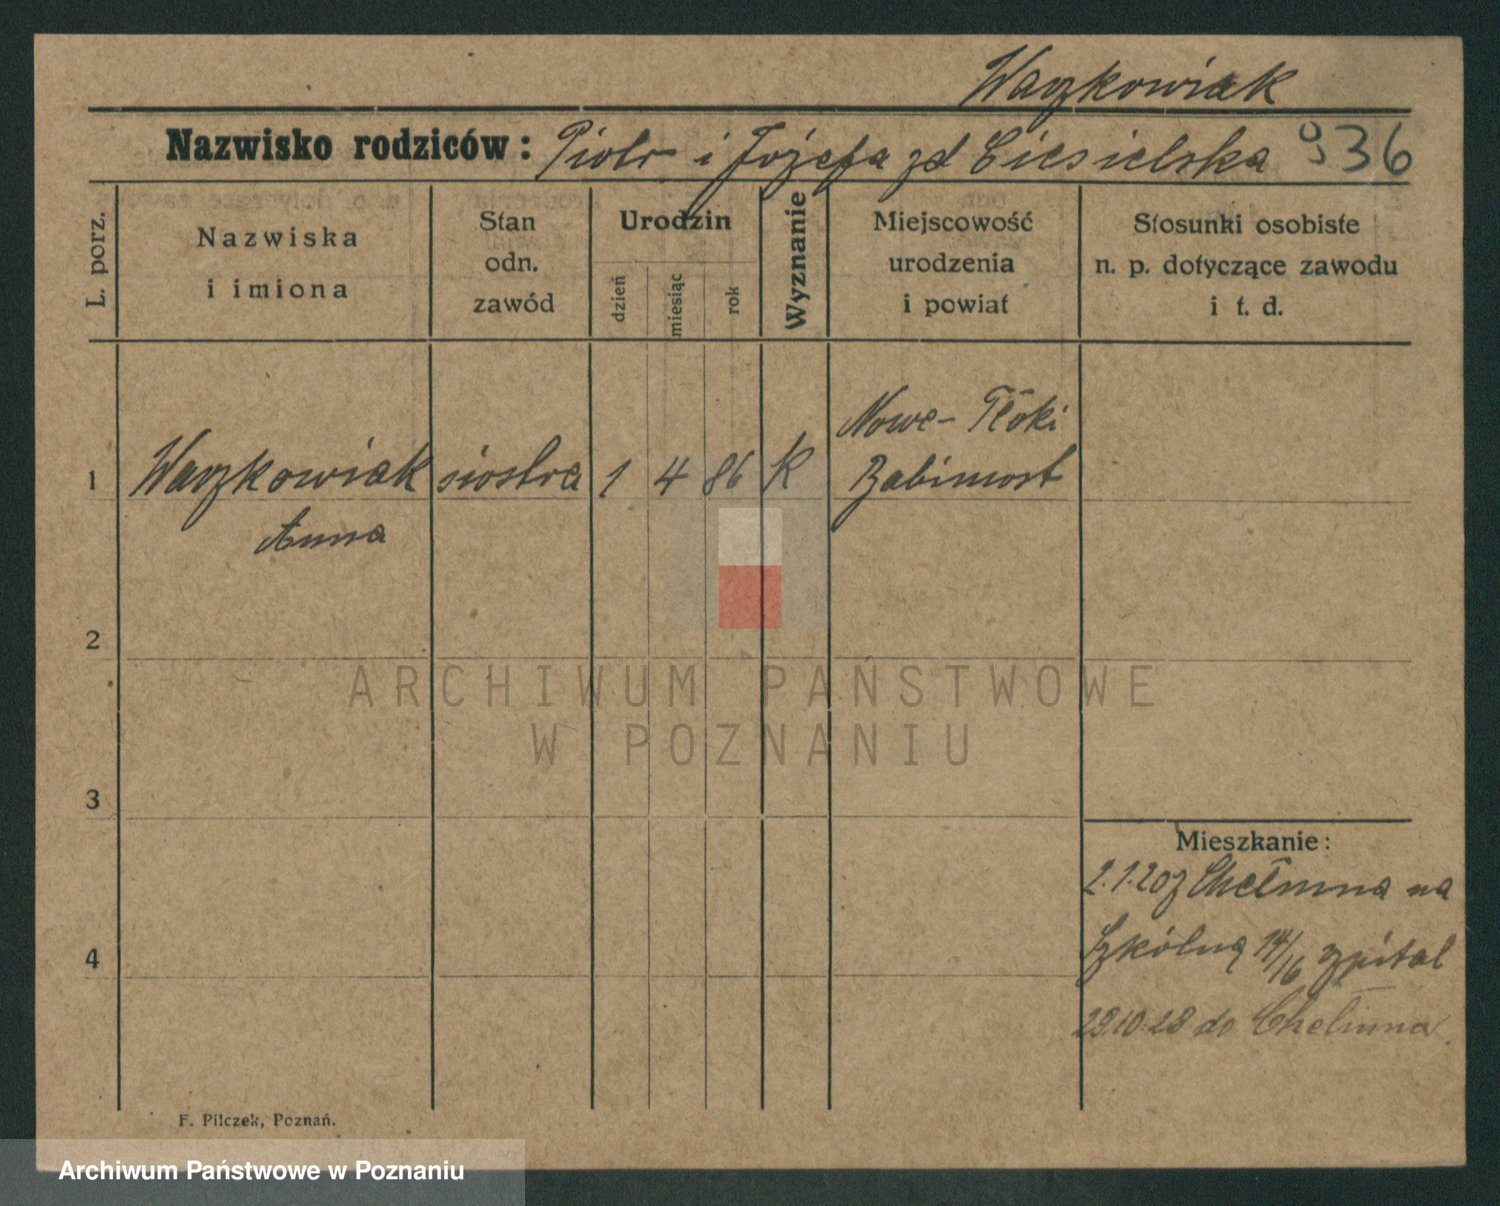 Waczkowiak
Nazwisko rodziców: Piotr i Józefa zd Ciesielska 936
L. porz.
Nazwiska
i imiona
Stan
odn.
zawód
Urodzin
dzień
miesiąc
rok
Wyznanie
Miejscowość
urodzenia
i powiat
Stosunki osobiste
n. p. dotyczące zawodu
i t. d.
Nowe-Tłoki
1 Waczkowiak siostra 1 4 86 K Babimost
Anna
2
ARCHIWUM PAŃSTWOWE
W POZNANIU
3
Mieszkanie:
2.1.20 z Chełmna na
4 Szkólną 14/16 szpital
29.10.28 do Chełmna
F. Pilczek, Poznań.
Archiwum Państwowe w Poznaniu